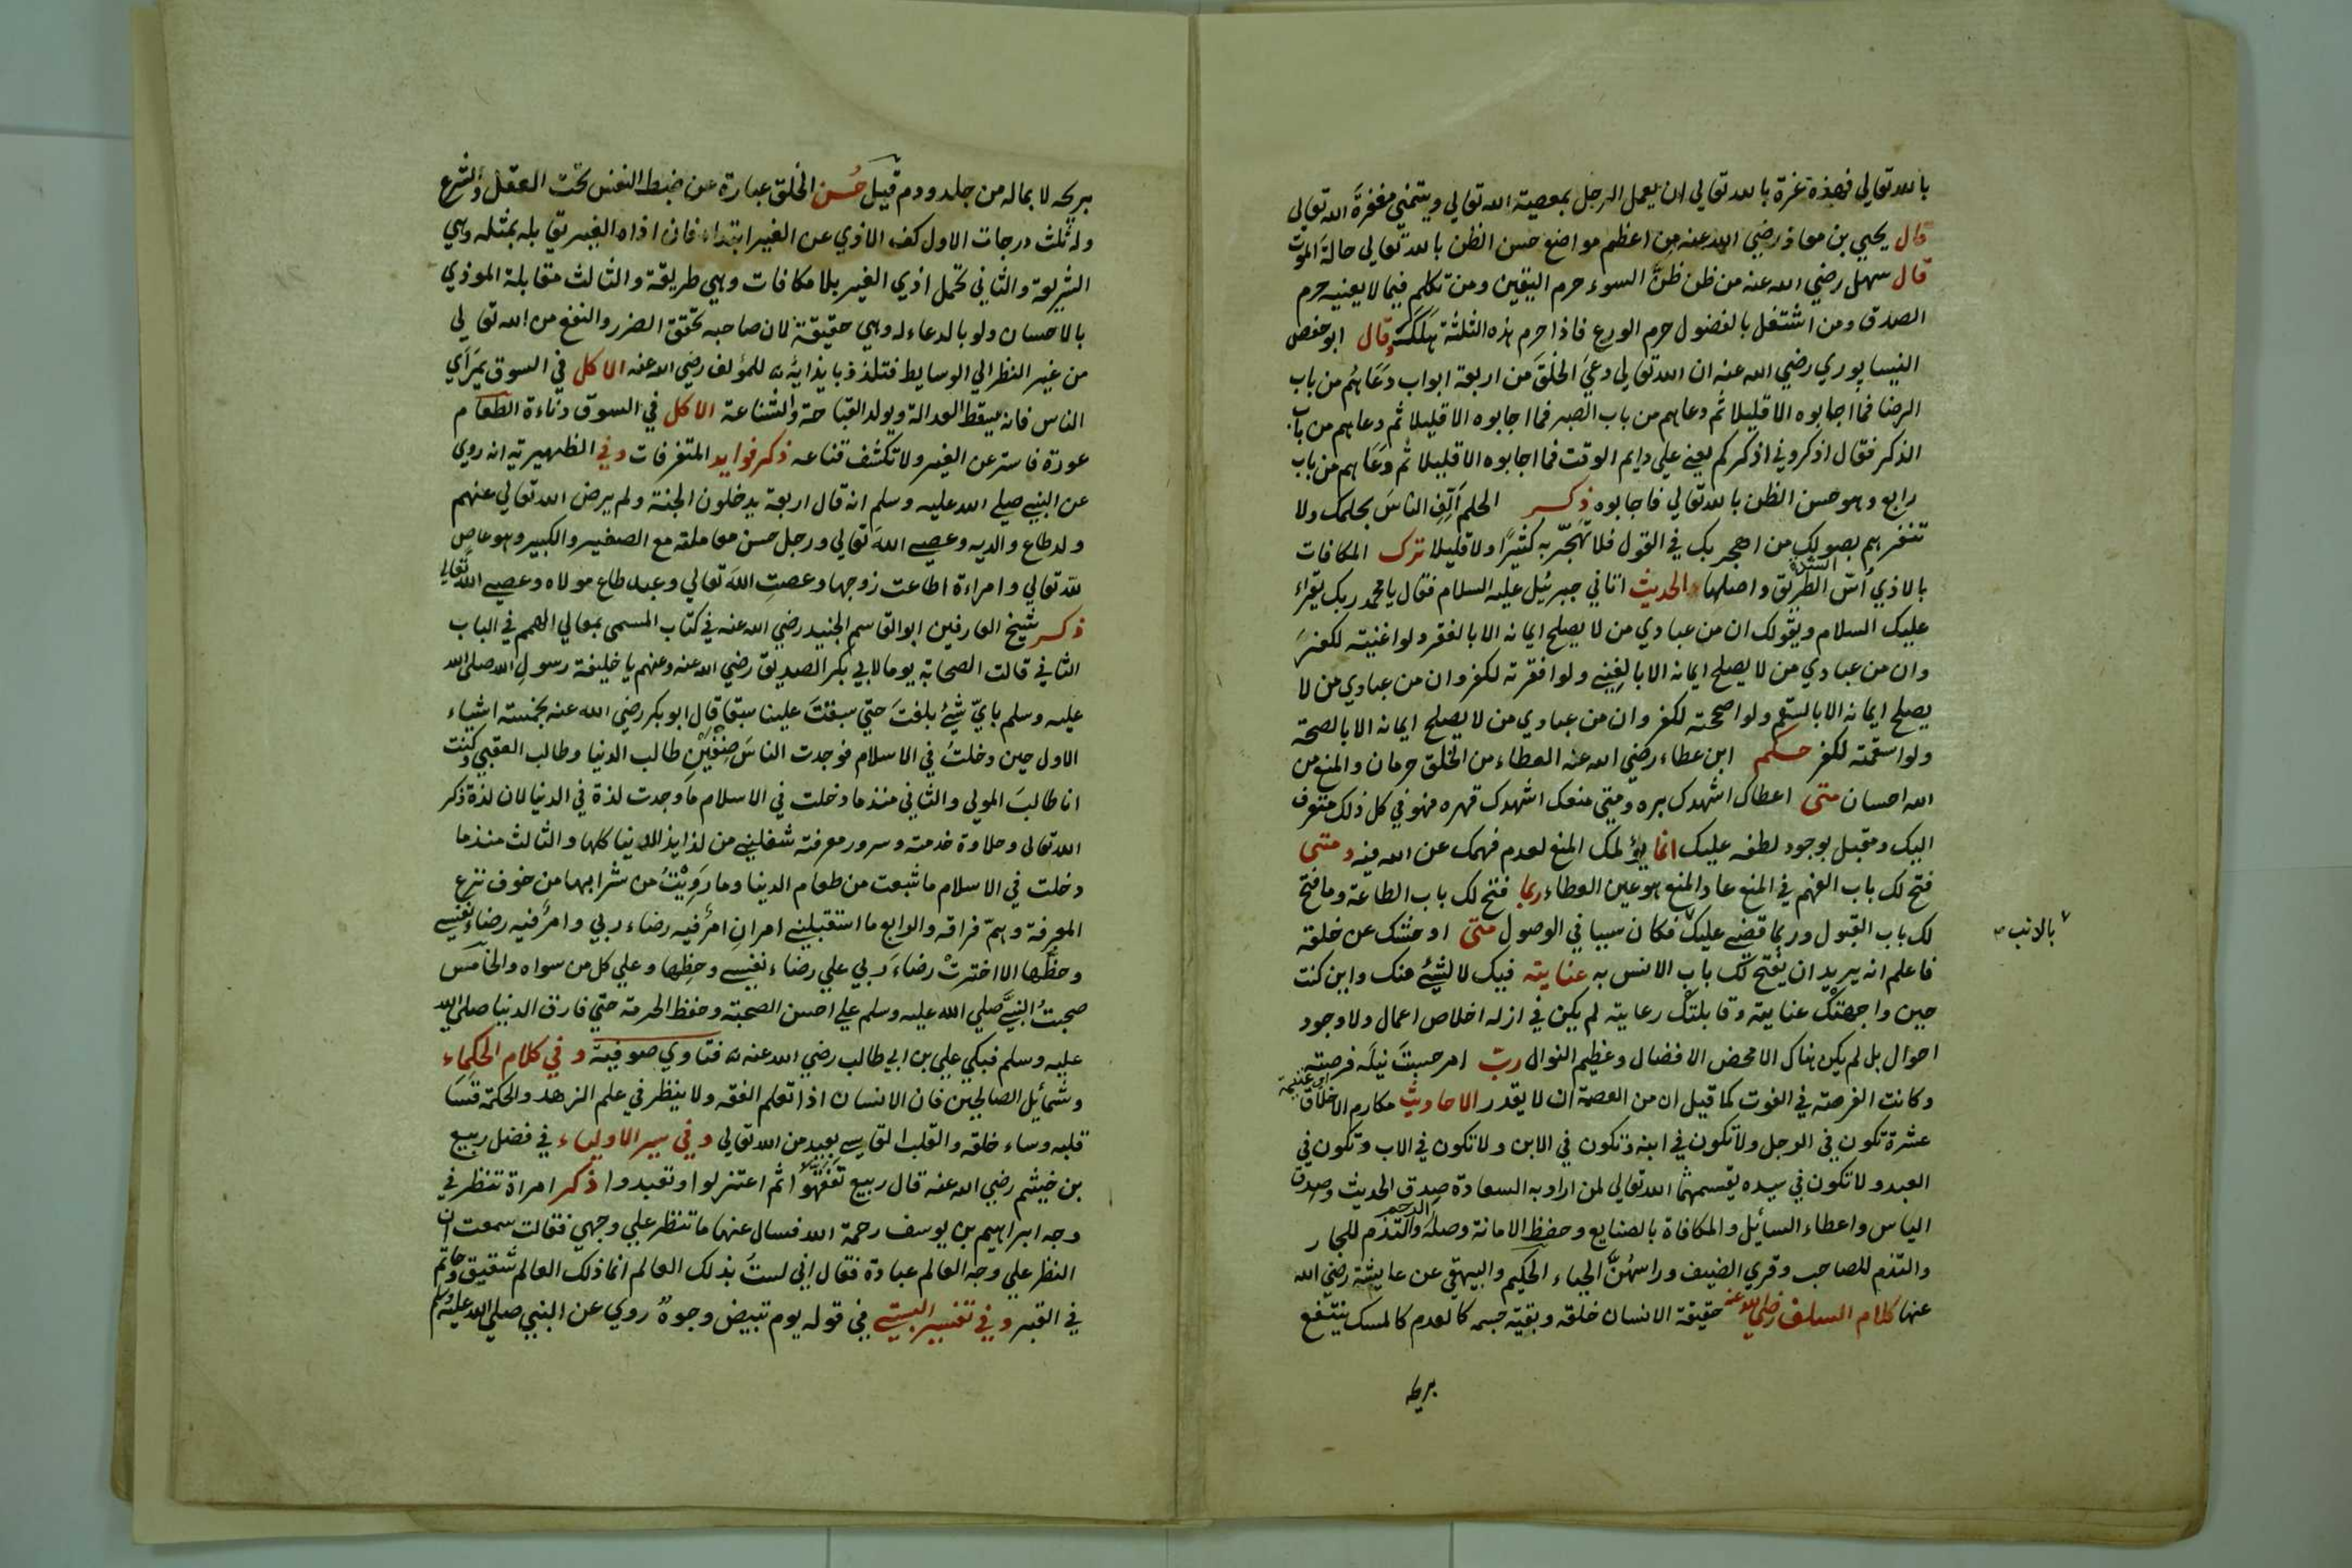 بالله تعالي فهذه غرة بالله تعالي ان يعمل الرجل بمعصية الله تعالي ويتمني مغفرة الله تعالي
قال يحيي بن معاذ رضي الله عنه من اعظم مواضع حسن الظن بالله تعالي حالة الموت
قال سهل رضي الله عنه من ظن ظنَّ السوء حرم اليقين ومن تكلم فيما لا يعنيه حرم
الصدق ومن اشتغل بالفضول حرم الورع فاذا حرم هذه الثلثة هلك وقال ابو حفص
النيسابوري رضي الله عنه ان الله تعالي دعي الخلق من اربعة ابواب دعاهم من باب
الرضا فما اجابوه الا قليلا ثم دعاهم من باب الصبر فما اجابوه الا قليلا ثم دعاهم من باب
الذكر فقال اذكروني اذكركم يعني علي دايم الوقت فما اجابوه الا قليلا ثم دعاهم من باب
رابع وهو حسن الظن بالله تعالي فاجابوه ذكر الحلم الناس بحلمك ولا
تنفرهم بصولك من اهجر بك في القول فلا تهجر به كثيرًا ولا قليلا ترك المكافات
بالاذي اسّ الطريق واصلها الحديث اتاني جبرئيل عليه السلام فقال يا محمد ربك يقراء
عليك السلام ويقولك ان من عبادي من لا يصلح ايمانه الا بالفقر ولو اغنيته لكفر
وان من عبادي من لا يصلح ايمانه الا بالغني ولو افقرته لكفر وان من عبادي من لا
يصلح ايمانه الا بالسقم ولو اصححته لكفر وان من عبادي من لا يصلح ايمانه الا بالصحة
ولو اسقمته لكفر حكم ابن عطاء رضي الله عنه العطاء من الخلق حرمان والمنع من
الله احسان متى اعطاك اشهدك بره ومتي منعك اشهدك قهره فهو في كل ذلك متعرف
اليك ومقبل بوجود لطفه عليك انما يؤلمك المنع لعدم فهمك عن الله فيه ومتي
فتح لك باب الفهم في المنع عاد المنع هو عين العطاء ربما فتح لك باب الطاعة وما فتح
لك باب القبول وربما قضي عليك فكان سببا في الوصول متى اوحشك عن خلقه
بالذنب
فاعلم انه يريد ان يفتح لك باب الانس به عنايته فيك لا لشيء منك واين كنت
حين واجهتك عنايته وقابلتك رعايته لم يكن في ازله اخلاص اعمال ولا وجود
احوال بل لم يكن هناك الا محض الافضال وعظيم النوال رب امر حسبت نيله فرصته
وكانت الفرصة في الفوت كما قيل ان من العصمة ان لا يقدر الاحاديث مكارم الاخلاق
عشرة تكون في الرجل ولا تكون في ابنه وتكون في الابن ولا تكون في الاب وتكون في
العبد ولا تكون في سيده يقسمها الله تعالي لمن اراد به السعادة صدق الحديث وصدق
الباس واعطاء السائل والمكافاة بالصنايع وحفظ الامانة وصلة الرحم والتذمم للجار
والتذمم للصاحب وقري الضيف وراسهنَّ الحياء الحكيم والبيهقي عن عايشة رضي الله
عنها كلام السلف رضي الله عنه حقيقة الانسان خلقه وبقية جسمه كالعدم كالمسك ينتفع
بريحه
بريحه لا بماله من جلد ودم قيل حُسن الخلق عبارة عن ضبط النفس تحت العقل والشرع
وله ثلث درجات الاول كف الاذي عن الغير ابتداء فان اذاه الغير يقابله بمثله وهي
الشريعة والثاني تحمل اذي الغير بلا مكافات وهي طريقة والثالث مقابلة الموذي
بالاحسان ولو بالدعاء له وهي حقيقة لان صاحبه تحقق الضرر والنفع من الله تعالي
من غير النظر الي الوسايط فتلذذ بايذائه للمؤلف رضي الله عنه الاكل في السوق بمرأي
الناس فانه يسقط العدالة ويولد القباحة والشناعة الاكل في السوق دناءة الطعام
عورة فاستر عن الغير ولا تكشف قناعه ذكر فوايد المتفرقات وفي الظهيرية انه روي
عن النبي صلي الله عليه وسلم انه قال اربعة يدخلون الجنة ولم يرض الله تعالي عنهم
ولد طاع والديه وعصي الله تعالي ورجل حسن معاملته مع الصغير والكبير وهو عاص
لله تعالي وامراءة اطاعت زوجها وعصت الله تعالي وعبد طاع مولاه وعصي الله تعالي
ذكر شيخ العارفين ابو القاسم الجنيد رضي الله عنه في كتاب المسمي بمعالي الهمم في الباب
الثاني قالت الصحابة يوما لابي بكر الصديق رضي الله عنه وعنهم يا خليفة رسول الله صلى الله
عليه وسلم بايّ شيء بلغت حتي سبقت علينا سبقا قال ابو بكر رضي الله عنه بخمسة اشياء
الاول حين دخلت في الاسلام فوجدت الناس صنفين طالب الدنيا وطالب العقبي وكنت
انا طالب المولي والثاني منذ ما دخلت في الاسلام ما وجدت لذة في الدنيا لان لذة ذكر
الله تعالى وحلاوة خدمته وسرور معرفته شغلني من لذايذ الدنيا كلها والثالث منذ ما
دخلت في الاسلام ما شبعت من طعام الدنيا وما رَوِيْتُ من شرابها من خوف نزع
المعرفة وهمّ فراقه والرابع ما استقبلني امران امرٌ فيه رضاء ربي وامرٌ فيه رضاء نفسي
وحظها الا اخترت رضاء ربي علي رضاء نفسي وحظها وعلي كل من سواه والخامس
صحبتُ النبي صلي الله عليه وسلم علي احسن الصحبة وحفظ الحرمة حتي فارق الدنيا صلي الله
عليه وسلم فبكي علي بن ابي طالب رضي الله عنه فتاوي صوفية وفي كلام الحكماء
وشمائل الصالحين فان الانسان اذا تعلم الفقه ولا ينظر في علم الزهد والحكمة قسا
قلبه وساء خلقه والقلب القاسي بعيد من الله تعالي وفي سير الاولياء في فضل ربيع
بن خيثم رضي الله عنه قال ربيع تفقهوا ثم اعتزلوا وتعبدوا ذكر امراة تنظر في
وجه ابراهيم بن يوسف رحمة الله فسال عنها ما تنظر علي وجهي فقالت سمعت ان
النظر علي وجه العالم عبادة فقال اني لستُ بذلك العالم انما ذلك العالم شقيق وحاتم
في القبر وفي تفسير البستي في قوله يوم تبيض وجوه روي عن النبي صلي الله عليه وسلم